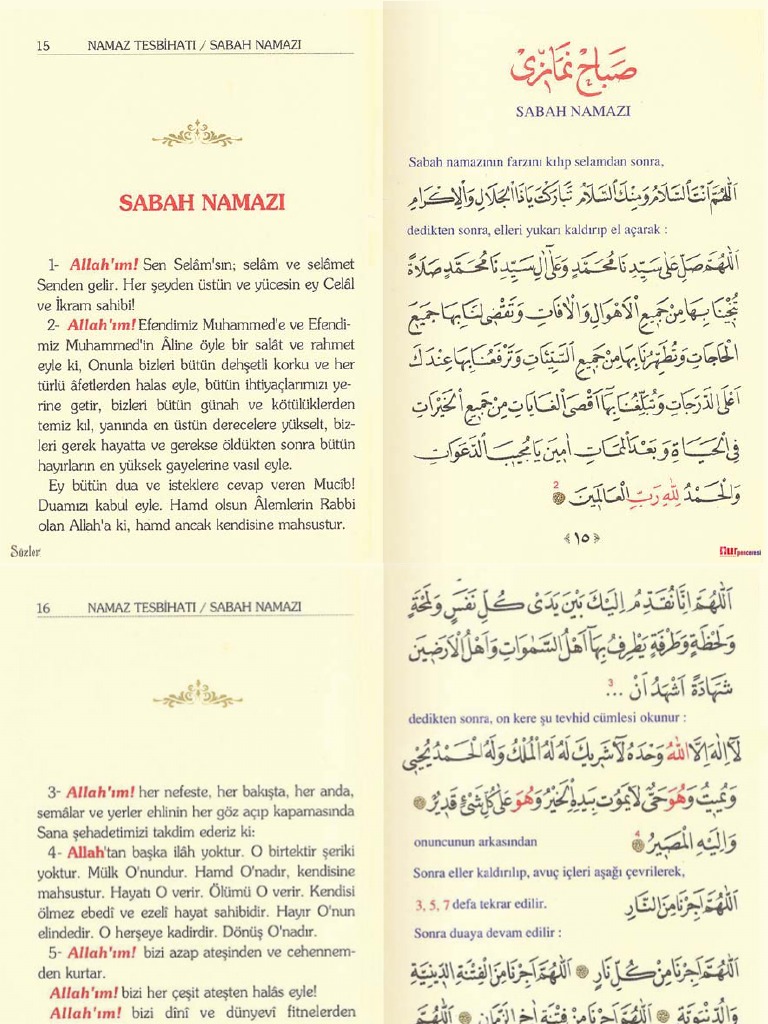 15 NAMAZ TESBİHATI / SABAH NAMAZI
SABAH NAMAZI
1- Allah'ım! Sen Selâm'sın; selâm ve selâmet
Senden gelir. Her şeyden üstün ve yücesin ey Celâl
ve İkram sahibi!
2- Allah'ım! Efendimiz Muhammed'e ve Efendi-
miz Muhammed'in Âline öyle bir salât ve rahmet
eyle ki, Onunla bizleri bütün dehşetli korku ve her
türlü âfetlerden halas eyle, bütün ihtiyaçlarımızı ye-
rine getir, bizleri bütün günah ve kötülüklerden
temiz kıl, yanında en üstün derecelere yükselt, biz-
leri gerek hayatta ve gerekse öldükten sonra bütün
hayırların en yüksek gayelerine vasıl eyle.
Ey bütün dua ve isteklere cevap veren Mucîb!
Duamızı kabul eyle. Hamd olsun Âlemlerin Rabbi
olan Allah'a ki, hamd ancak kendisine mahsustur.
Sözler
صباح نمازى
SABAH NAMAZI
Sabah namazının farzını kılıp selamdan sonra,
اَللّٰهُمَّ اَنْتَ السَّلَامُ وَمِنْكَ السَّلَامُ تَبَارَكْتَ يَاذَا الْجَلَالِ وَالْاِكْرَامِ
dedikten sonra, elleri yukarı kaldırıp el açarak :
اَللّٰهُمَّ صَلِّ عَلٰى سَيِّدِنَا مُحَمَّدٍ وَعَلٰى اٰلِ سَيِّدِنَا مُحَمَّدٍ صَلَاةً
تُنْجِينَا بِهَا مِنْ جَمِيعِ الْاَهْوَالِ وَالْاٰفَاتِ وَتَقْضِى لَنَا بِهَا جَمِيعَ
الْحَاجَاتِ وَتُطَهِّرُنَا بِهَا مِنْ جَمِيعِ السَّيِّئَاتِ وَتَرْفَعُنَا بِهَا عِنْدَكَ
اَعْلَى الدَّرَجَاتِ وَتُبَلِّغُنَا بِهَا اَقْصَى الْغَايَاتِ مِنْ جَمِيعِ الْخَيْرَاتِ
فِى الْحَيَاةِ وَبَعْدَ الْمَمَاتِ اٰمِينَ يَا مُجِيبَ الدَّعَوَاتِ
وَالْحَمْدُ لِلّٰهِ رَبِّ الْعَالَمِينَ 2
١٥
Nur penceresi
16 NAMAZ TESBİHATI / SABAH NAMAZI
3- Allah'ım! her nefeste, her bakışta, her anda,
semâlar ve yerler ehlinin her göz açıp kapamasında
Sana şehadetimizi takdim ederiz ki:
4- Allah'tan başka ilâh yoktur. O birtektir şeriki
yoktur. Mülk O'nundur. Hamd O'nadır, kendisine
mahsustur. Hayatı O verir. Ölümü O verir. Kendisi
ölmez ebedî ve ezelî hayat sahibidir. Hayır O'nun
elindedir. O herşeye kadirdir. Dönüş O'nadır.
5- Allah'ım! bizi azap ateşinden ve cehennem-
den kurtar.
Allah'ım! bizi her çeşit ateşten halâs eyle!
Allah'ım! bizi dînî ve dünyevî fitnelerden
اَللّٰهُمَّ اِنَّا نُقَدِّمُ اِلَيْكَ بَيْنَ يَدَىْ كُلِّ نَفَسٍ وَلَمْحَةٍ
وَلَحْظَةٍ وَطَرْفَةٍ يَطْرِفُ بِهَا اَهْلُ السَّمٰوَاتِ وَاَهْلُ الْاَرَضِينَ
شَهَادَةً اَشْهَدُ اَنْ ... 3
dedikten sonra, on kere şu tevhid cümlesi okunur :
لَا اِلٰهَ اِلَّا اللّٰهُ وَحْدَهُ لَا شَرِيكَ لَهُ لَهُ الْمُلْكُ وَلَهُ الْحَمْدُ يُحْيِى
وَيُمِيتُ وَهُوَ حَىٌّ لَا يَمُوتُ بِيَدِهِ الْخَيْرُ وَهُوَ عَلٰى كُلِّ شَىْءٍ قَدِيرٌ
onuncunun arkasından وَاِلَيْهِ الْمَصِيرُ 4
Sonra eller kaldırılıp, avuç içleri aşağı çevrilerek,
اَللّٰهُمَّ اَجِرْنَا مِنَ النَّارِ 3, 5, 7 defa tekrar edilir.
Sonra duaya devam edilir :
اَللّٰهُمَّ اَجِرْنَا مِنْ كُلِّ نَارٍ اَللّٰهُمَّ اَجِرْنَا مِنَ الْفِتْنَةِ الدِّينِيَّةِ
وَالدُّنْيَوِيَّةِ اَللّٰهُمَّ اَجِرْنَا مِنْ فِتْنَةِ اٰخِرِ الزَّمَانِ اَللّٰهُمَّ